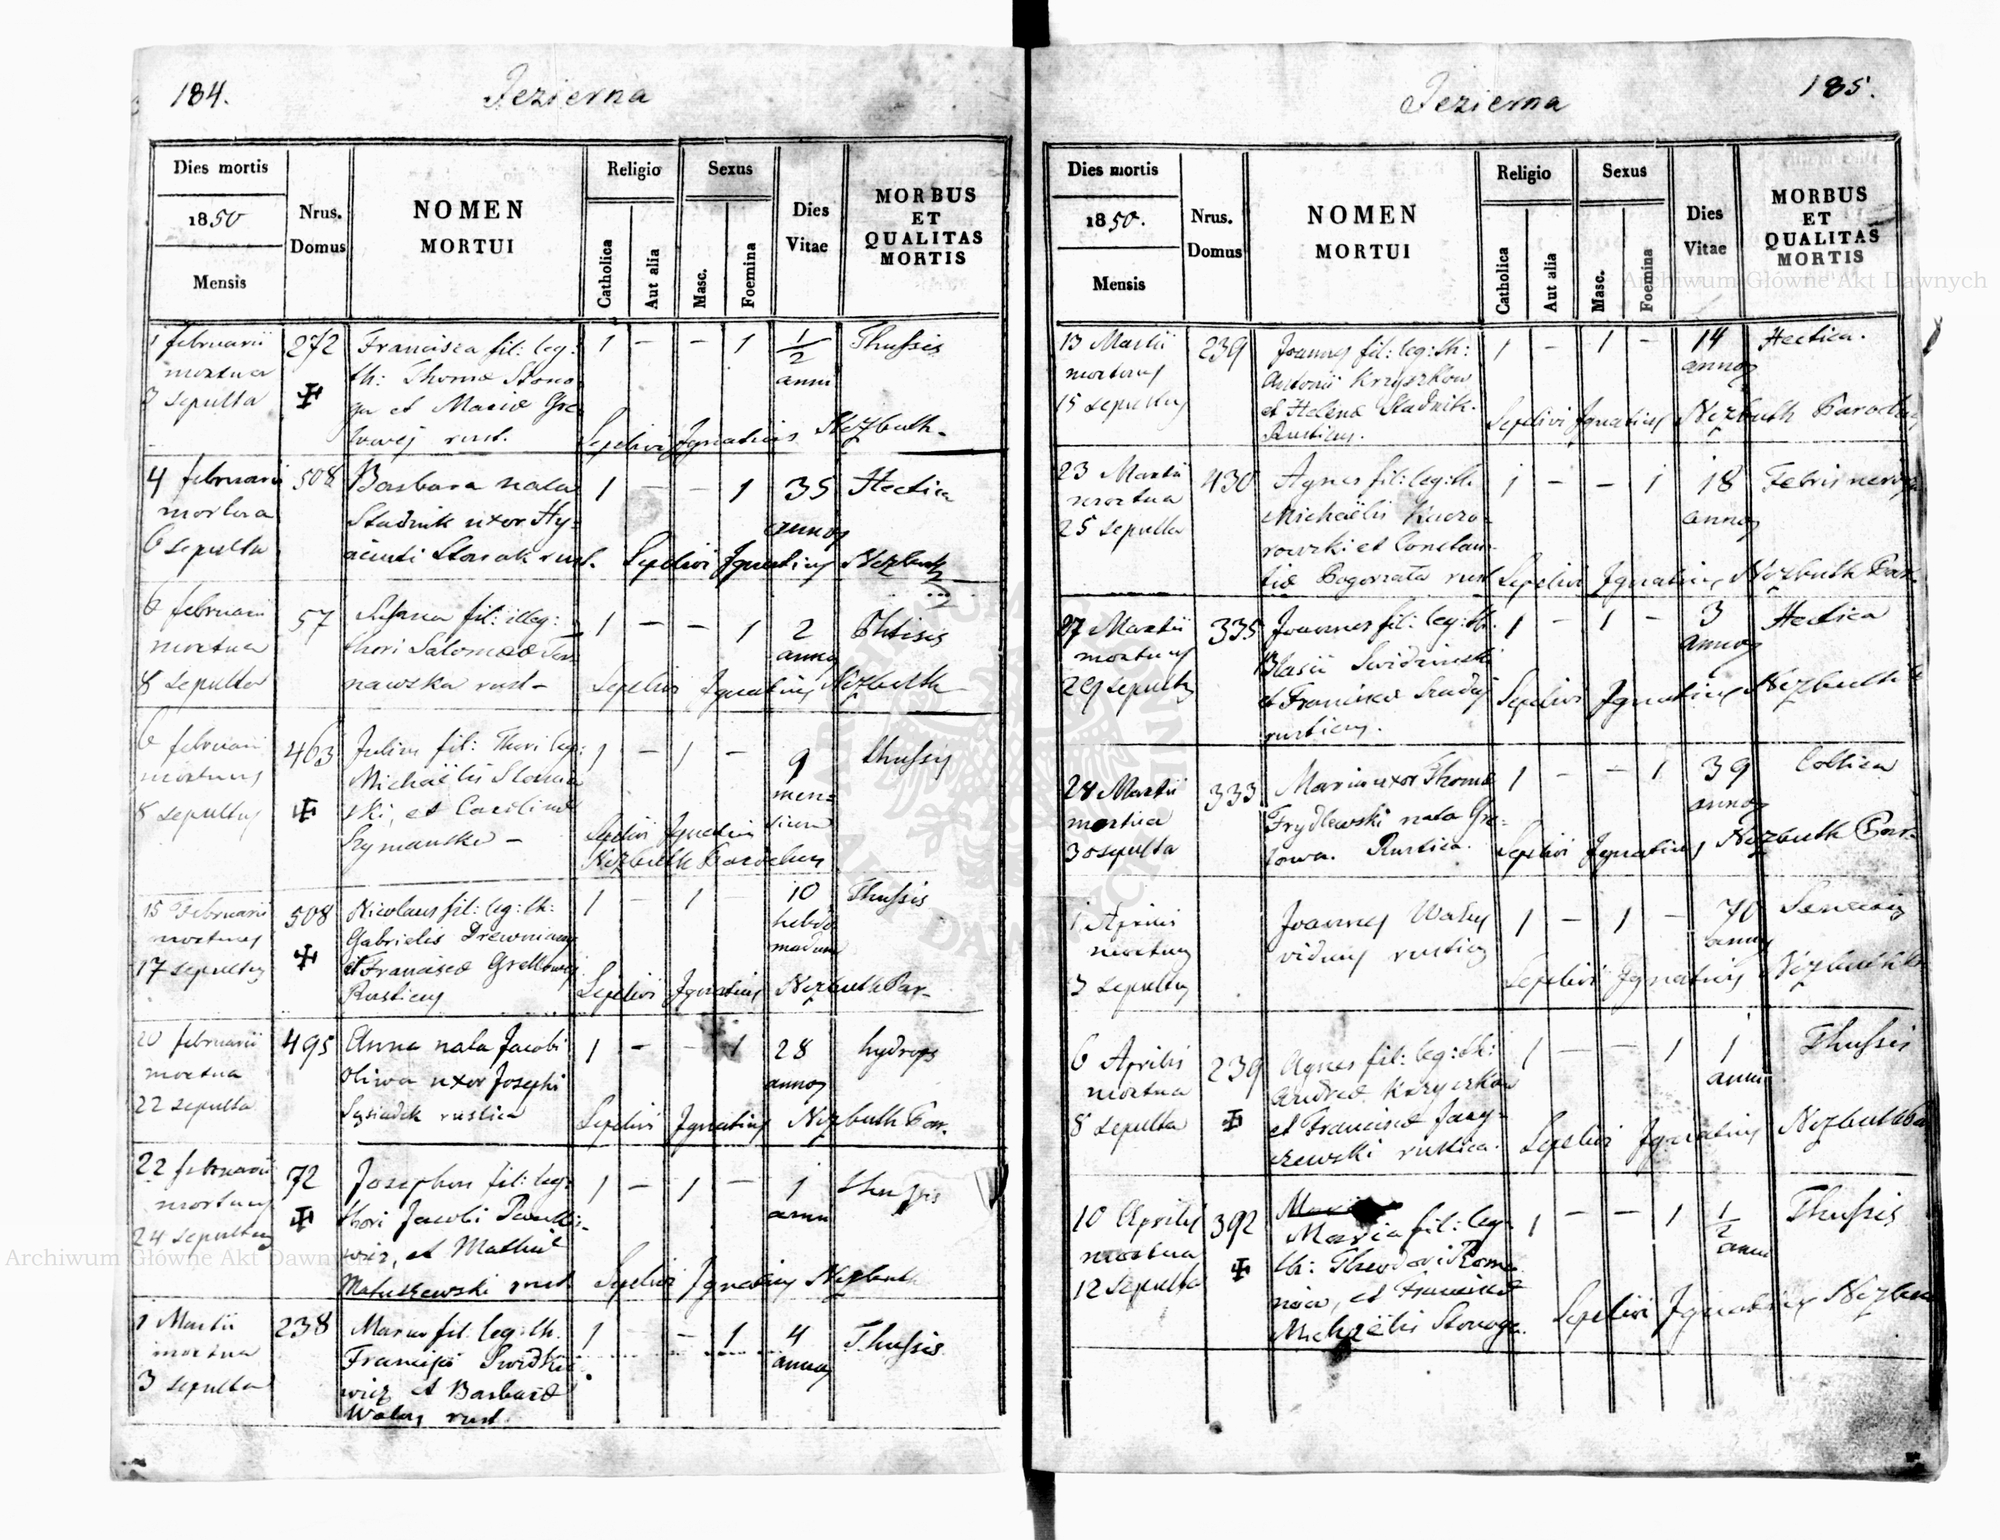 184.
Jezierna
Dies mortis
1850
Mensis
Nrus.
Domus
NOMEN
MORTUI
Religio
Catholica
Aut alia
Sexus
Masc.
Foemina
Dies
Vitae
MORBUS
ET
QUALITAS
MORTIS
1 februarii 272 Francisca fil: leg: 1 – – 1 1/2 Thussis
mortua th: Thomæ Stono- anni
3 sepulta ga et Mariæ Gre-
rust. Sepelivi Ignatius Nezbuth
4 februarii 508 Barbara nata 1 – – 1 35 Hectica
mortua Stadnik uxor Hy- annos
6 sepulta acinti Slosak rust. Sepelivi Ignatius Nezbuth
6 februarii 57 fil: illeg: 1 – – 1 2 Phtisis
mortua thori Salomeæ annos
8 sepulta nawska rust – Sepelivi Ignatius Nezbuth
6 februarii 463 Julius fil: Thori leg: 1 – 1 – 9 thussis
mortuus Michaëlis men-
8 sepultus ski, et Carolinæ sium
Szymanski – Sepelivi Ignatius
Nezbuth Parochus
15 Februarii 508 Nicolaus fil: leg: th: 1 – 1 – 10 Thussis
mortuus Gabrielis hebdo-
17 sepultus et Franciscæ madum
Rusticus Sepelivi Ignatius Nezbuth Par-
20 februarii 495 Anna nata Jacobi 1 – – 1 28 hydrops
mortua Oliwa uxor Josephi annos
22 sepulta Sąsiadek rustica Sepelivi Ignatius Nezbuth Par.
22 februarii 72 Josephus fil: leg: 1 – 1 – 1 thussis
mortuus thori Jacobi anni
24 sepultus wicz, et
Matuszewski rust Sepelivi Ignatius Nezbuth
1 Martii 238 fil: leg: th. 1 – 1 4 Thussis
mortua annos
3 sepulta wicz et Barbaræ
Wałuś rust.
185.
Jezierna
Dies mortis
1850.
Mensis
Nrus.
Domus
NOMEN
MORTUI
Religio
Catholica
Aut alia
Sexus
Masc.
Foemina
Dies
Vitae
MORBUS
ET
QUALITAS
MORTIS
13 Martii 239 Joannes fil: leg: th: 1 – 1 – 14 Hectica.
mortuus Antonii Krzyszkow annos
15 sepultus et Helenæ Stadnik. Sepelivi Ignatius Nezbuth Parochus
Rusticus.
23 Martii 430 Agnes fil: leg: th. 1 – – 1 18 Febris nervosa
mortua Michaëlis annos
25 sepulta rowski et Constan-
tiæ rust Sepelivi Ignatius Nezbuth Par.
27 Martii 335 Joannes fil: leg: th. 1 – 1 – 3 Hectica
mortuus Blasii annos
29 sepultus et Franciscæ Sepelivi Ignatius Nezbuth
rusticus.
28 Martii 333 Maria uxor Thomæ 1 – – 1 39 Collica
mortua Frydlewski nata Gre- annos
30 sepulta Rustica. Sepelivi Ignatius Nezbuth Par-
1 Aprilis Joannes Wałuś 1 – 1 – 70
mortuus viduus rusticus annos
3 sepultus Sepelivi Ignatius Nezbuth
6 Aprilis 239 Agnes fil: leg: th: 1 – – 1 1 Thussis
mortua Andreæ Krzyszkow anni
8 sepulta et Franciscæ Jarzy-
czewski rustica. Sepelivi Ignatius Nezbuth
10 Aprilis 392 Maria fil: leg- 1 – – 1 1/2 Thussis
mortua th: Theodori anni
12 sepulta et Franciscæ
Michaëlis Stonoga. Sepelivi Ignatius
Archiwum Główne Akt Dawnych
Archiwum Główne Akt Dawnych